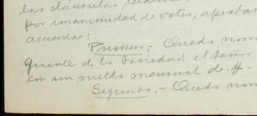 las cláusulas
por unanimidad de votos,
acuerda:
Primero: Queda nom
gerente de la Sociedad el señor
con un sueldo mensual de #
Segundo.- Queda nom